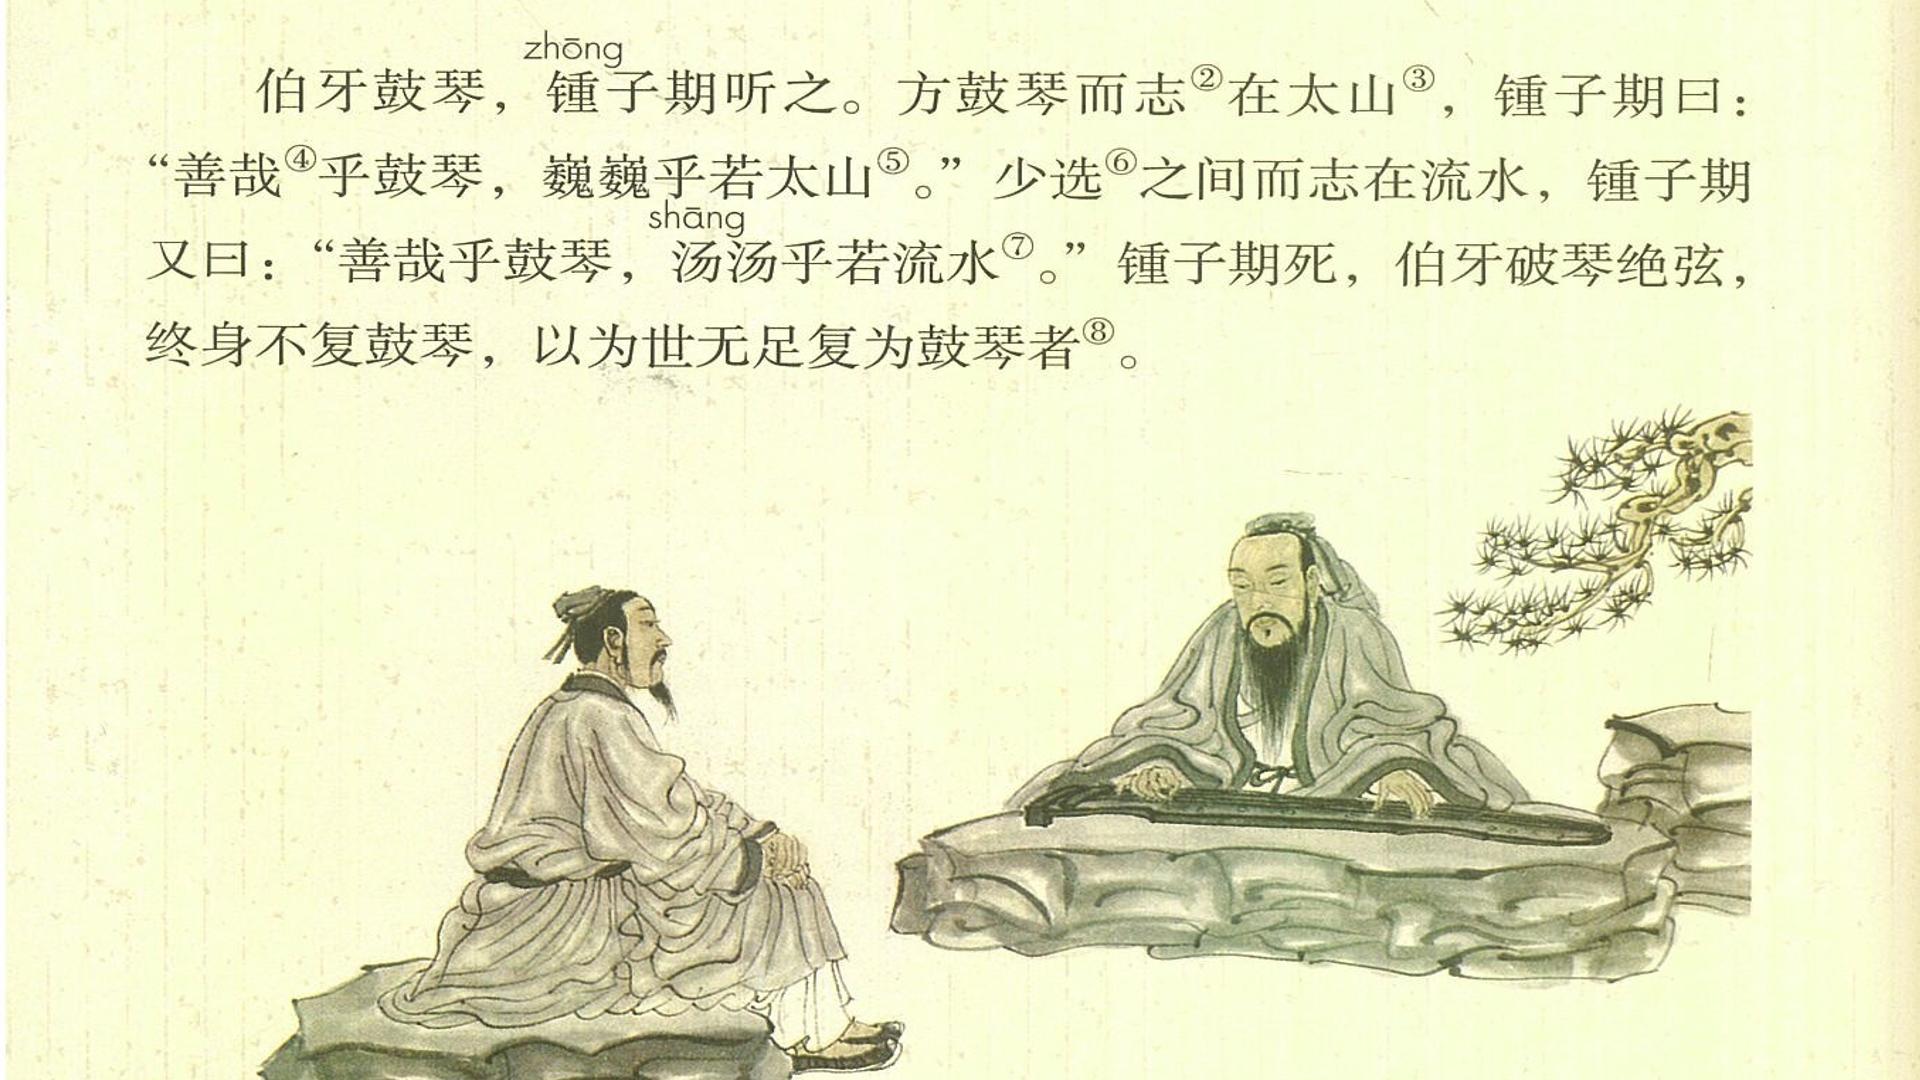 zhōng
伯牙鼓琴，锺子期听之。方鼓琴而志②在太山③，锺子期曰：
“善哉④乎鼓琴，巍巍乎若太山⑤。”少选⑥之间而志在流水，锺子期
shāng
又曰：“善哉乎鼓琴，汤汤乎若流水⑦。”锺子期死，伯牙破琴绝弦，
终身不复鼓琴，以为世无足复为鼓琴者⑧。